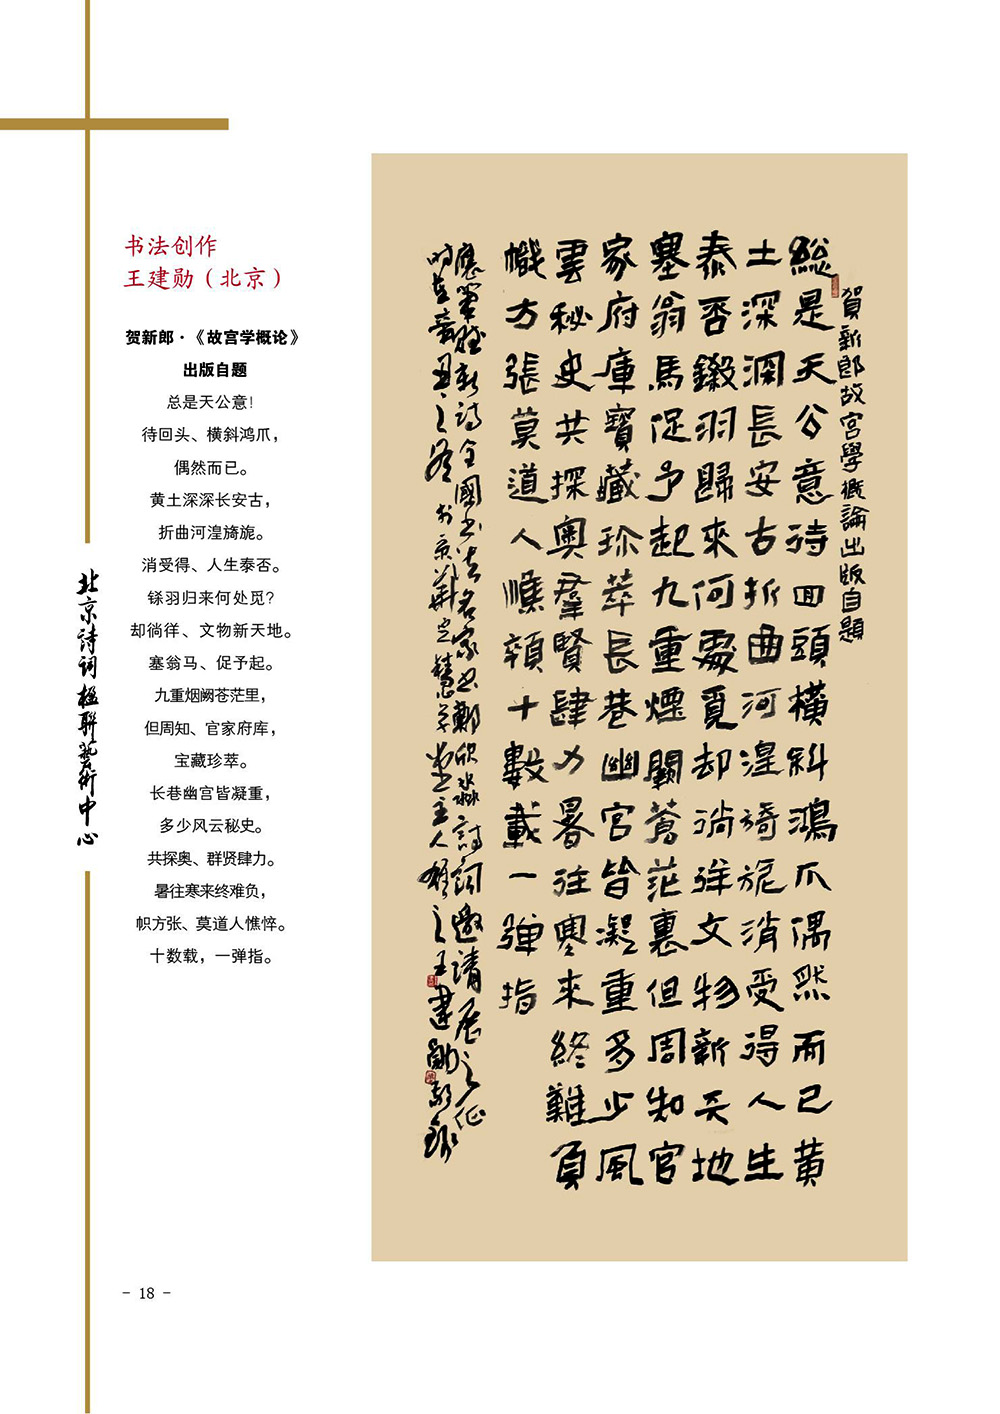 书法创作
王建勋（北京）
贺新郎·《故宫学概论》
出版自题
总是天公意！
待回头、横斜鸿爪，
偶然而已。
黄土深深长安古，
折曲河湟旖旎。
消受得、人生泰否。
铩羽归来何处觅？
却徜徉、文物新天地。
塞翁马、促予起。
九重烟阙苍茫里，
但周知、官家府库，
宝藏珍萃。
长巷幽宫皆凝重，
多少风云秘史。
共探奥、群贤肆力。
暑往寒来终难负，
帜方张、莫道人憔悴。
十数载，一弹指。
北京詩词楹聯藝術中心
賀新郎故宮學概論出版自題
総是天公意待回頭橫斜鴻爪偶然而已黄
土深深長安古折曲河湟旖旎消受得人生
泰否鎩羽歸來何處覓却徜徉文物新天地
塞翁馬促予起九重煙闕蒼茫裏但周知官
家府庫寶藏珍萃長巷幽宮皆凝重多少風
雲秘史共探奥羣賢肆力暑往寒来終難負
幟方張莫道人憔顇十數載一彈指
- 18 -